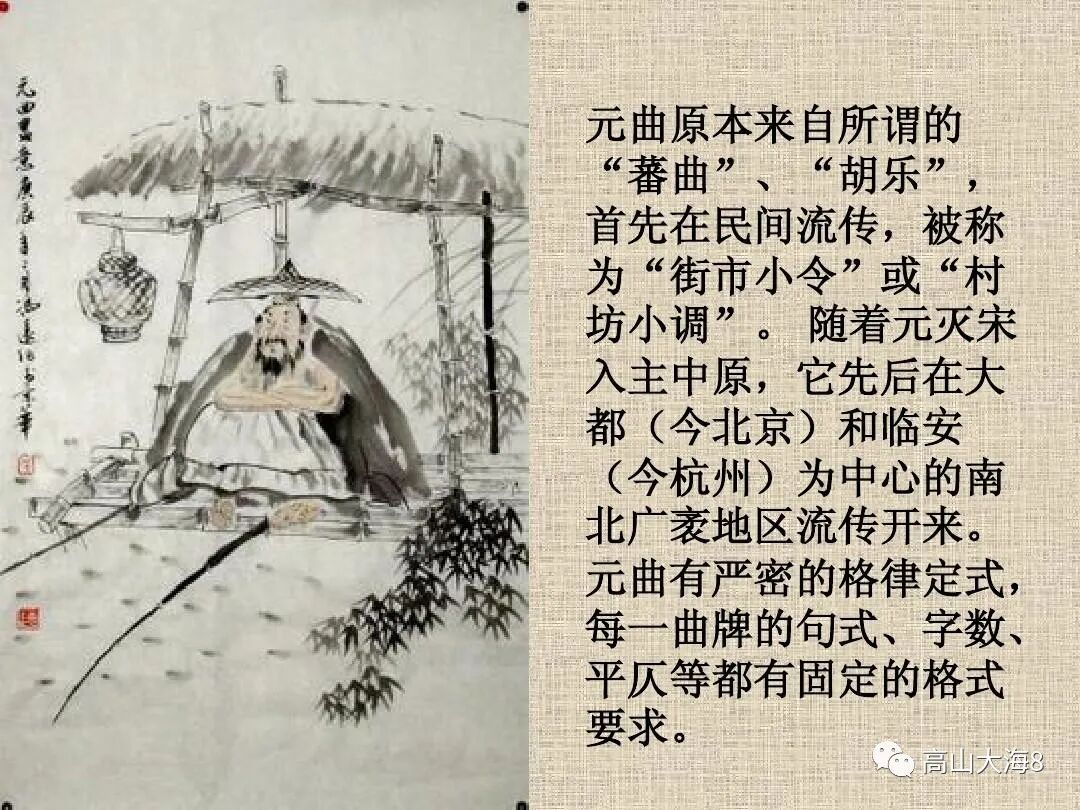 元曲原本来自所谓的
“蕃曲”、“胡乐”，
首先在民间流传，被称
为“街市小令”或“村
坊小调”。 随着元灭宋
入主中原，它先后在大
都（今北京）和临安
（今杭州）为中心的南
北广袤地区流传开来。
元曲有严密的格律定式，
每一曲牌的句式、字数、
平仄等都有固定的格式
要求。
高山大海8